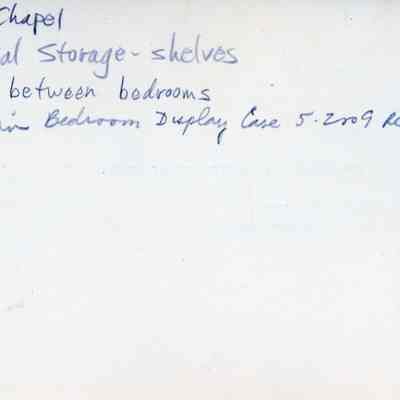 Chapel
al Storage - shelves
between bedrooms
in Bedroom Display Case 5-2009 Re